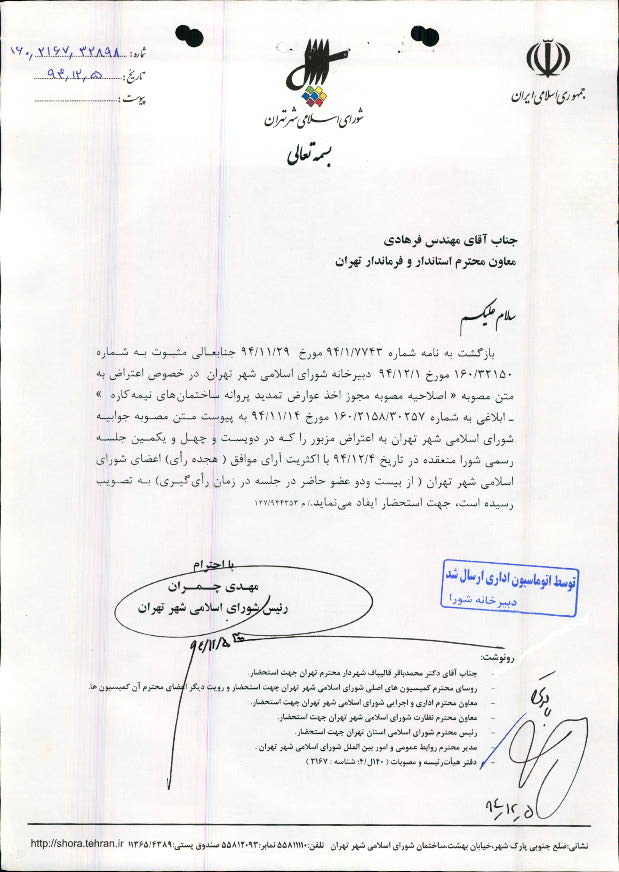 جمهوری اسلامی ایران
شورای اسلامی شهر تهران
بسمه تعالی
شماره: ۱۶۰٫۲۱۶۷٫۳۲۸۹۸
تاریخ: ۹۴٫۱۲٫۵
پیوست:
جناب آقای مهندس فرهادی
معاون محترم استاندار و فرماندار تهران
سلام علیکم
بازگشت به نامه شماره ۹۴/۱/۷۷۴۳ مورخ ۹۴/۱۱/۲۹ جنابعالی مثبوت به شماره
۱۶۰/۳۲۱۵۰ مورخ ۹۴/۱۲/۱ دبیرخانه شورای اسلامی شهر تهران در خصوص اعتراض به
متن مصوبه « اصلاحیه مصوبه مجوز اخذ عوارض تمدید پروانه ساختمان‌های نیمه‌کاره »
ـ ابلاغی به شماره ۱۶۰/۲۱۵۸/۳۰۲۵۷ مورخ ۹۴/۱۱/۱۴ به پیوست متن مصوبه جوابیه
شورای اسلامی شهر تهران به اعتراض مزبور را که در دویست و چهل و یکمین جلسه
رسمی شورا منعقده در تاریخ ۹۴/۱۲/۴ با اکثریت آرای موافق ( هجده رأی) اعضای شورای
اسلامی شهر تهران ( از بیست ودو عضو حاضر در جلسه در زمان رأی‌گیری) به تصویب
رسیده است، جهت استحضار ایفاد می‌نماید./ م ۱۲۷/۹۴۴۳۵۳
با احترام
مهـدی چـمـران
رئیس شورای اسلامی شهر تهران
توسط اتوماسیون اداری ارسال شد
دبیرخانه شورا
رونوشت:
- جناب آقای دکتر محمدباقر قالیباف شهردار محترم تهران جهت استحضار.
- روسای محترم کمیسیون های اصلی شورای اسلامی شهر تهران جهت استحضار و رویت دیگر اعضای محترم آن کمیسیون ها.
- معاون محترم اداری و اجرایی شورای اسلامی شهر تهران جهت استحضار.
- معاون محترم نظارت شورای اسلامی شهر تهران جهت استحضار.
- رئیس محترم شورای اسلامی استان تهران جهت استحضار.
- مدیر محترم روابط عمومی و امور بین الملل شورای اسلامی شهر تهران.
- دفتر هیأت‌رئیسه و مصوبات ( ۱۴۰ل/۴؛ شناسه : ۲۱۶۷ )
۹۴٫۱۲٫۵
نشانی:ضلع جنوبی پارک شهر،خیابان بهشت،ساختمان شورای اسلامی شهر تهران تلفن:۵۵۸۱۱۱۱۰ نمابر:۵۵۸۱۲۰۹۳ صندوق پستی:۱۱۳۶۵/۴۳۸۹ http://shora.tehran.ir